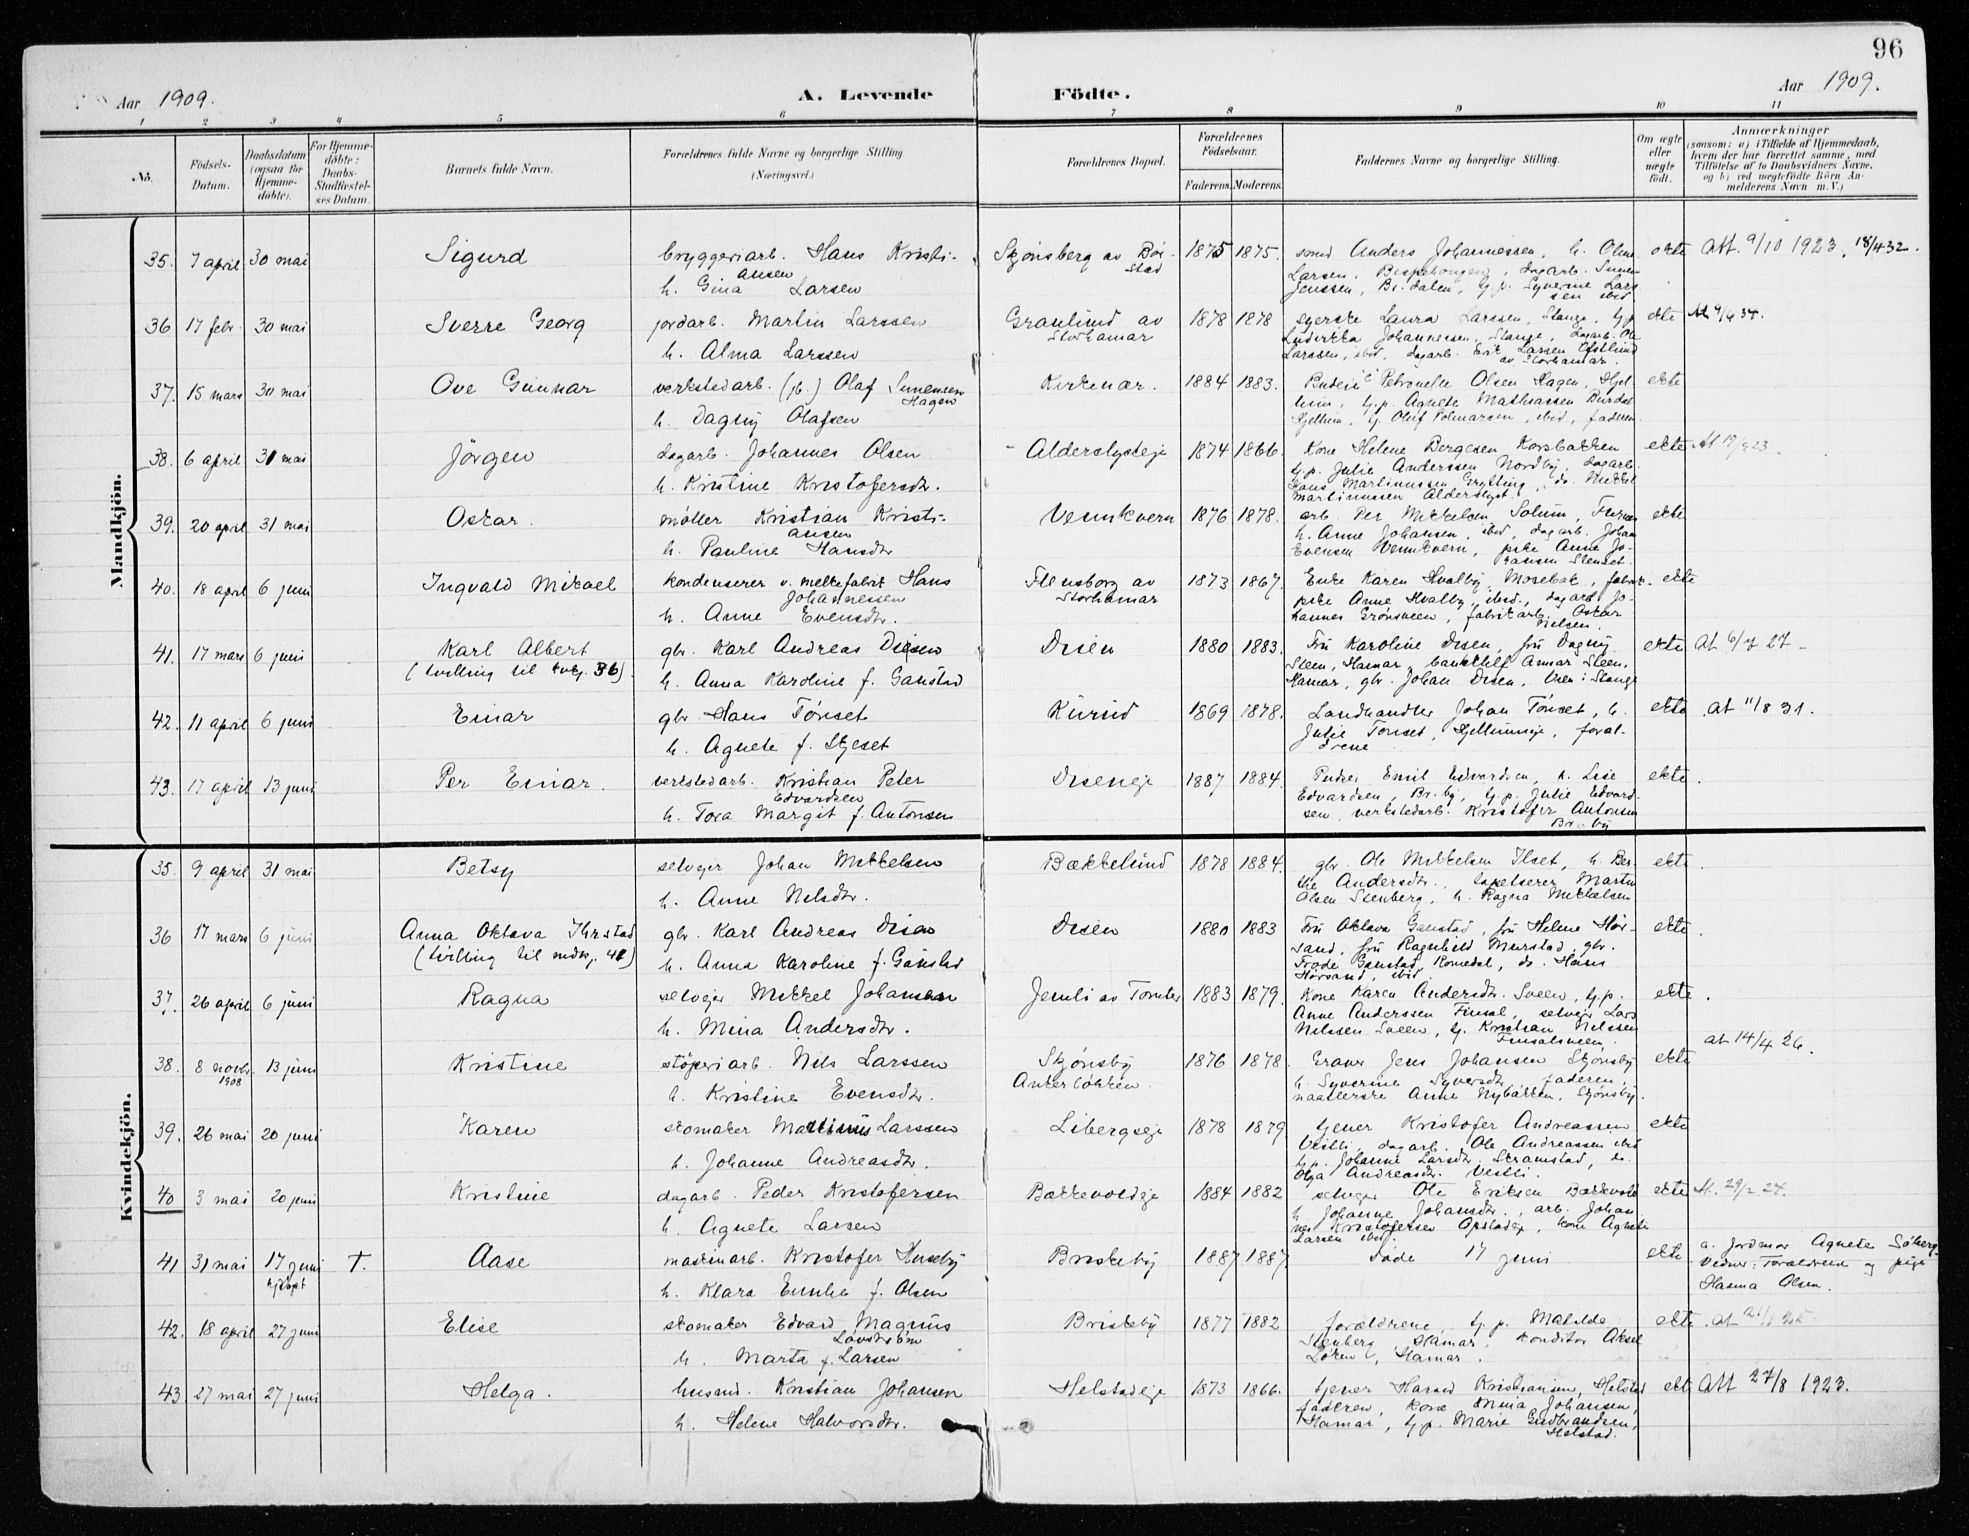 96
Aar 1909.
A. Levende
Födte.
Aar 1909.
1 2 3 4 5 6 7 8 9 10 11
No.
Födsels-Datum.
Daabsdatum (ogsaa for Hjemme-döbte).
For Hjemme-döbte: Daabs-Stadfæstel-ses Datum.
Barnets fulde Navn.
Forældrenes fulde Navne og borgerlige Stilling (Næringsvei.)
Forældrenes Bopæl.
Forældrenes Födselsaar.
Faderens. Moderens.
Faddernes Navne og borgerlige Stilling.
Om ægte eller uægte födt.
Anmærkninger
(saasom: a) i Tilfælde af Hjemmedaab, hvem der har forrettet samme, med Tilföielse af to Daabsvidners Navne. og b) ved uægtefödte Börn An-melderens Navn m. V.)
Mandkjön.
35. 7 april 30 mai Sigurd bryggeriarb. Hans Kristi-ansen h. Gina Larsen Skjønsberg av Børstad 1875 1875. Anders Johannessen, h. Oline Larsen, dagarb. Simen Jenssen, Br.dalen, tj.p. Syverine Larssen ibid ekte Att. 9/10 1923, 18/4 32.
36 17 febr. 30 mai Sverre Georg jordarb. Martin Larssen h. Alma Larssen Granlund av Storhamar 1878 1878 syerske Laura Larssen, Stange, tj.p. Ludvikka Johannessen, Stange, dagarb. Ole Larssen, ibid, dagarb. Erik Larsen Østlund av Storhamar ekte At 9/6 34.
37. 15 mars 30 mai Ove Gunnar verkstedarb. (jb.) Olaf Simensen Hagen h. Dagny Olafsen Kirkenær. 1884 1883. Budeie Petronelle Olsen Hagen, Hjellum, tj.p. Agnete Mathiassen Hjellum, Oluf ibid, faderen ekte
38. 6 april 31 mai Jörgen dagarb. Johannes Olsen h. Kristine Kristofersdtr. Alderslysteje 1874 1866. Kone Helene Bergesen Korsbakken tj.p. Julie Anderssen Nordby, dagarb. Hans Martinussen Grytting, do. Mikkel Martinussen Alderslyst. ekte
39. 20 april 31 mai Oskar. møller Kristian Kristi-ansen h. Pauline Hansdtr Vennkvern 1876 1878. arb. Per Mikkelsen Solum, h. Anne Johansen, ibid, dagarb. Johan Evensen Vennkvern, pike Anne Johansen ekte
40. 18 april 6 juni Ingvald Mikael kondenserer v. melkefabrik Hans Johannessen h. Anne Evensdtr. Flensborg av Storhamar 1873 1867. Enke Karen Hvalby, Mosebæk, fabrik-pike Anne Hvalby, ibid., dagarb. Johannes Grønsveen, fabrikarb. Oskar Nielsen. ekte
41. 17 mars 6 juni Karl Albert (tvilling til kvkj. 36). gbr. Karl Andreas Disen h. Anna Karoline f. Gaustad Disen 1880 1883. Fru Karoline Disen, fru Dagny Steen, Hamar, bankchef Annar Steen, Hamar, gbr. Johan Disen, i Stange ekte At 6/7 27
42. 11 april 6 juni Einar gbr Hans Tönset h. Agnete f. Skjeset Kurud 1869 1878. Landhandler Johan Tönset, h. Julie Tönset, Hjellumeje, foræl-drene ekte. At 11/8 31.
43. 17 april 13 juni Per Einar. verkstedarb. Kristian Peter Edvardsen h. Tora Margit f. Antonsen Diseneje 1887 1884. Emil Edvardsen, h. Lise Edvardsen, Br.by, tj.p. Julie Edvardsen, verkstedarb. Kristofer Antonsen Br.by ekte.
Kvindekjön.
35. 9 april 31 mai Betsy selveier Johan Mikkelsen h. Anne Nilsdtr. Bækkelund 1878 1884. gbr. Ole Mikkelsen Ilset, h. Berthe Andersdtr., tapetserer Martin Olsen Stenberg, h. Ragna Mikkelsen ekte.
36 17 mars 6 juni Anna Oktava (tvilling til mdkj. 41) gbr. Karl Andreas Disen h. Anna Karoline f. Gaustad Disen 1880 1883 Fru Oktava Gaustad, fru Helene Hörsand, fru Ragnhild Murstad, gbr. Frode Gaustad, Romedal, do. Hans Hörsand, ibid ekte.
37. 26 april 6 juni Ragna selveier Mikkel Johansen h. Mina Andersdtr. Jemli av Tomter 1883 1879. Kone Karen Andersdtr. Sveen, tj.p. Anne Anderssen Finsal, selveier Lars Nilssen Sveen, tj. Kristian Nilssen Finsalsveen. ekte.
38. 8 novbr. 1908 13 juni Kristine støperiarb. Nils Larssen h. Kristine Evensdtr. Skjønsby Ankerløkken. 1876 1878. Graver Jens Johansen Skjønsby h. Syverine Syversdtr faderen, naatlerske Anne Nybakken, Skjønsby. ekte at 14/4 26.
39. 26 mai 20 juni Karen skomaker Martinius Larssen h. Johanne Andreasdtr. Libergseje 1878 1879. tjener Kristofer Andreassen Vestli, dagarb. Ole Andreassen ibid tj.p. Johanne Larsdtr Stramstad, do. Olga Andreasdtr. Vestli. ekte
40 3 mai 20 juni Kristine dagarb. Peder Kristofersen h. Agnete Larsen Bækkevoldeje 1884 1882 selveier Ole Eriksen Bækkevold h. Johanne Johansdtr., arb. Johannes Kristofersen Opsadeje, kone Agnete Larsen ibid. ekte At. 29/2 24.
41 31 mai 17 juni hjdøpt T. Aase maskinarb. Kristofer Huseby h. Klara Emilie f. Olsen Briskeby 1887 1887. Döde 17 juni ekte a. jordmor Agnete Söberg. Vidner: Forældrene og pige Hanna Olsen.
42. 18 april 27 juni Elise skomaker Edvard Magnus Lövström h. Marta f. Larsen Briskeby 1877 1882 forældrene, tj.p. Matilde Stenberg, Hamar, konditor Aksel Lören, Hamar. ekte
43. 27 mai 27 juni Helga. husmd. Kristian Johansen h. Helene Halvorsdtr. Helstadeje 1873 1866. tjener Harald Kristiansen, Helstad faderen, kone Anna Johansen, Hamar, tj.p. Marie Gudbrandsen, Helstad. ekte Att 27/8 1923.